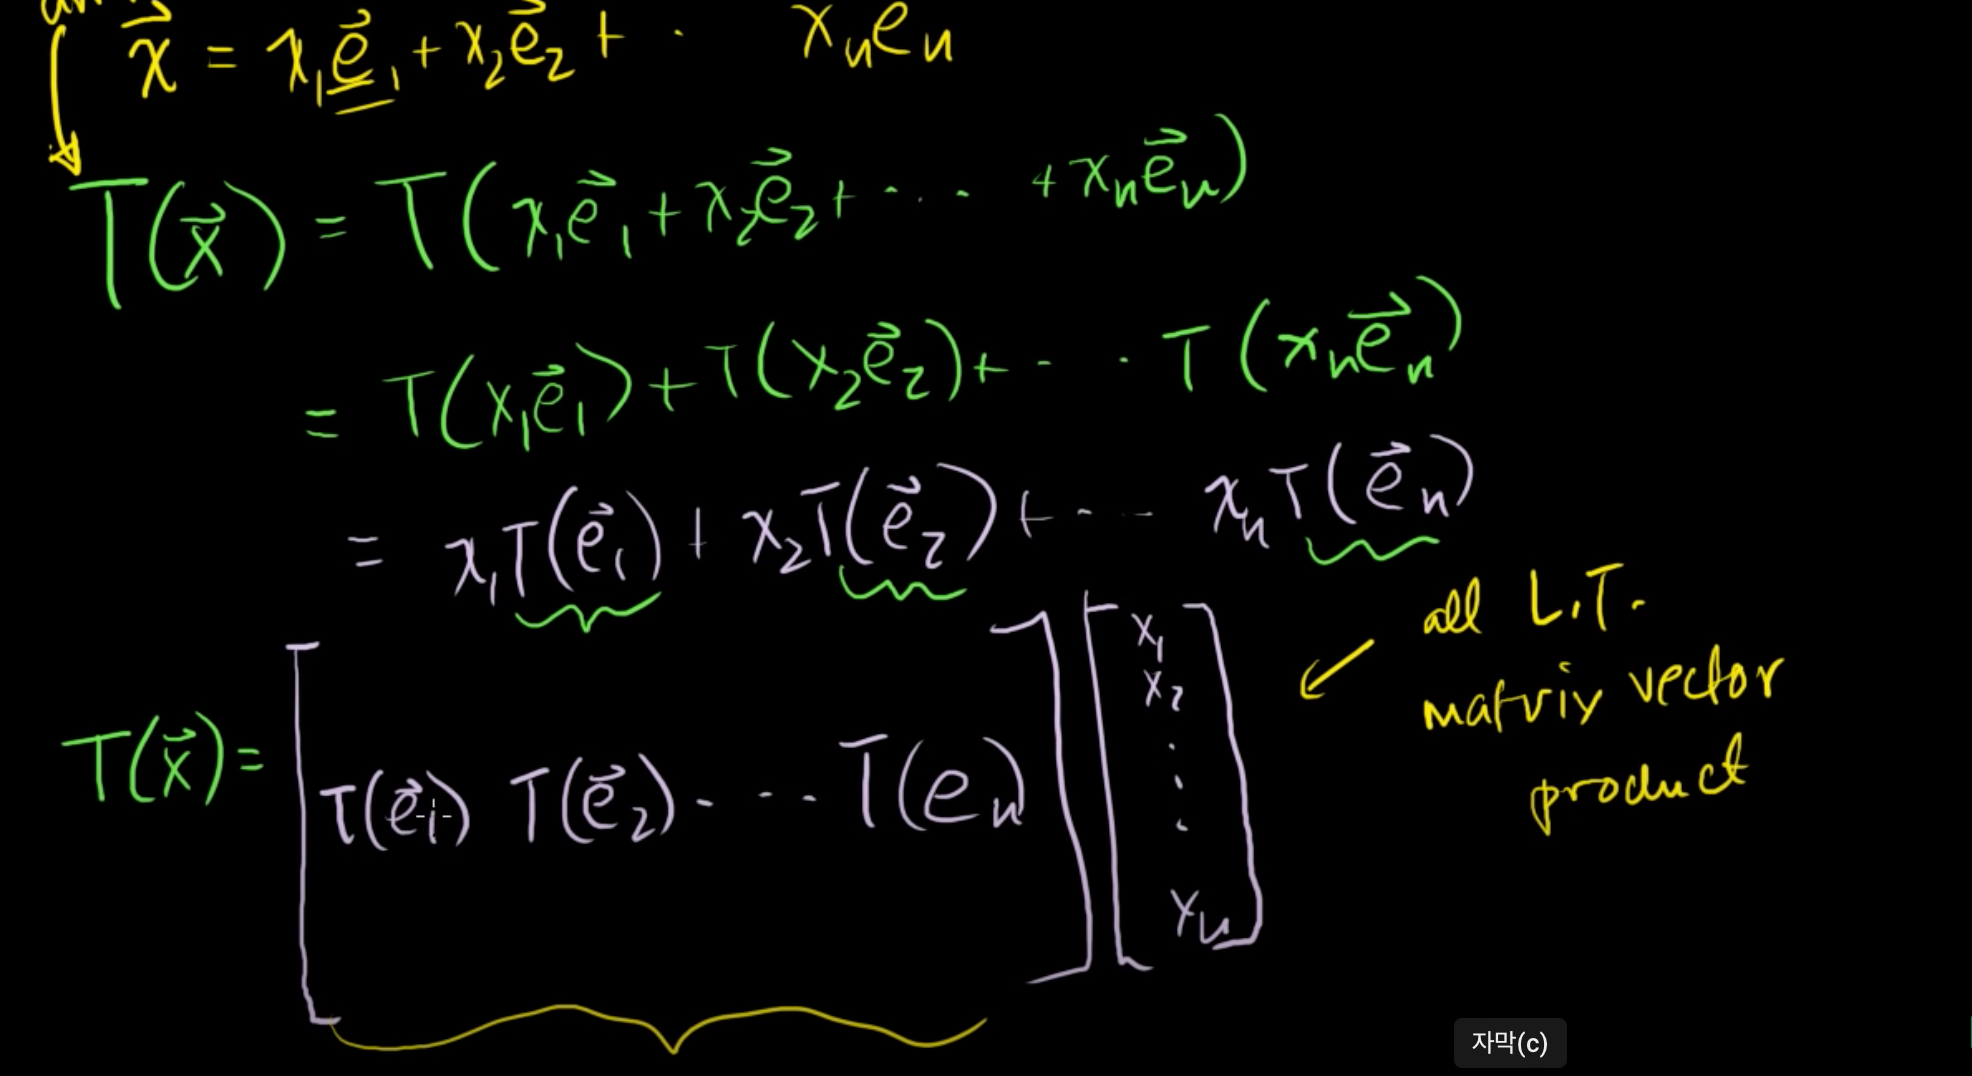 x⃗ = x₁e⃗₁ + x₂e⃗₂ + · xₙeₙ
T(x⃗) = T(x₁e⃗₁ + x₂e⃗₂ + · · · + xₙe⃗ₙ)
= T(x₁e⃗₁) + T(x₂e⃗₂) + · · · T(xₙe⃗ₙ)
= x₁T(e⃗₁) + x₂T(e⃗₂) + · · · xₙT(e⃗ₙ)
T(x⃗) = [T(e⃗₁) T(e⃗₂) · · · · T(eₙ)]
[x₁
x₂
·
·
·
xₙ]
all L.T.
matrix vector
product
자막(c)